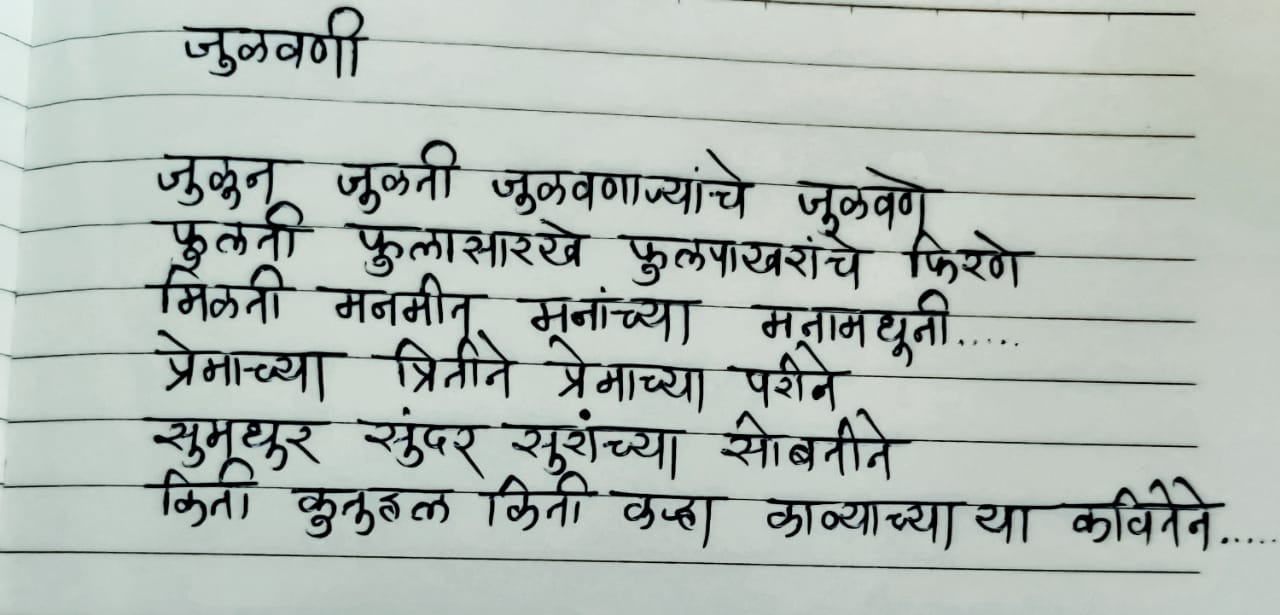 जुळवणी
जुळून जुळती जुळवणाऱ्यांचे जुळवणे
फुलती फुलासारखे फुलपाखरांचे फिरणे
मिळती मनमीत मनांच्या मनामधूनी.....
प्रेमाच्या प्रितीने प्रेमाच्या परीने
सुमधुर सुंदर सुरांच्या सोबतीने
किती कुतुहल किती काव्याच्या या कवितेने.....